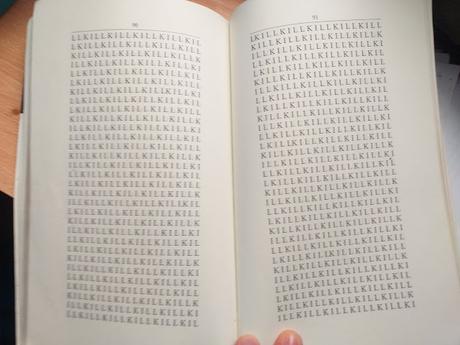 90
LLKILLKILLKILLKILLKIL
LKILLKILLKILLKILLKILL
KILLKILLKILLKILLKILLK
ILLKILLKILLKILLKILLKI
LLKILLKILLKILLKILLKIL
LKILLKILLKILLKILLKILL
KILLKILLKILLKILLKILLK
ILLKILLKILLKILLKILLKI
LLKILLKILLKILLKILLKIL
LKILLKILLKILLKILLKILL
KILLKILLKILLKILLKILLK
ILLKILLKILLKILLKILLKI
LLKILLKILLKILLKILLKIL
LKILLKILLKILLKILLKILL
KILLKILLKILLKILLKILLK
ILLKILLKILLKILLKILLKI
LLKILLKILLKILLKILLKIL
LKILLKILLKILLKILLKILL
KILLKILLKILLKILLKILLK
ILLKILLKILLKILLKILLKI
LLKILLKILLKILLKILLKIL
LKILLKILLKILLKILLKILL
KILLKILLKILLKILLKILLK
ILLKILLKILLKILLKILLKI
LLKILLKILLKILLKILLKIL
LKILLKILLKILLKILLKILL
KILLKILLKILLKILLKILLK
ILLKILLKILLKILLKILLKI
LLKILLKILLKILLKILLKIL
LKILLKILLKILLKILLKILL
KILLKILLKILLKILLKILLK
ILLKILLKILLKILLKILLKI
LLKILLKILLKILLKILLKIL
91
LKILLKILLKILLKILLKILL
KILLKILLKILLKILLKILLK
ILLKILLKILLKILLKILLKI
LLKILLKILLKILLKILLKIL
LKILLKILLKILLKILLKILL
KILLKILLKILLKILLKILLK
ILLKILLKILLKILLKILLKI
LLKILLKILLKILLKILLKIL
LKILLKILLKILLKILLKILL
KILLKILLKILLKILLKILLK
ILLKILLKILLKILLKILLKI
LLKILLKILLKILLKILLKIL
LKILLKILLKILLKILLKILL
KILLKILLKILLKILLKILLK
ILLKILLKILLKILLKILLKI
LLKILLKILLKILLKILLKIL
LKILLKILLKILLKILLKILL
KILLKILLKILLKILLKILLK
ILLKILLKILLKILLKILLKI
LLKILLKILLKILLKILLKIL
LKILLKILLKILLKILLKILL
KILLKILLKILLKILLKILLK
ILLKILLKILLKILLKILLKI
LLKILLKILLKILLKILLKIL
LKILLKILLKILLKILLKILL
KILLKILLKILLKILLKILLK
ILLKILLKILLKILLKILLKI
LLKILLKILLKILLKILLKIL
LKILLKILLKILLKILLKILL
KILLKILLKILLKILLKILLK
ILLKILLKILLKILLKILLKI